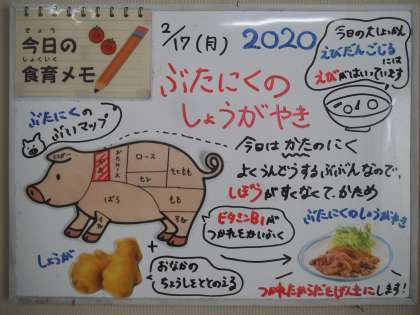 きょう
今日の
しょくいく
食育メモ
2/17(月) 2020
ぶたにくの
しょうがやき
えびだんごじる
には
えびがはいっています
ぶたにくの
ぶいマップ
ロース
かたロース
ヒレ
ばら
もも
今日はかたのにく
よくうんどうするぶぶんなので、
しぼうがすくなくて、かため
ビタミンB1が
つかれをかいふく
しょうが
+
おなかの
ちょうしをととのえる
ぶたにくのしょうがやき
つかれたからだをげん土にします!